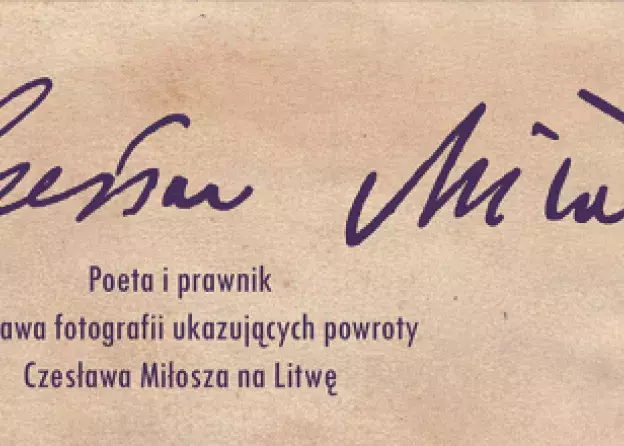 Poeta i prawnik
awa fotografii ukazujących powroty
Czesława Miłosza na Litwę